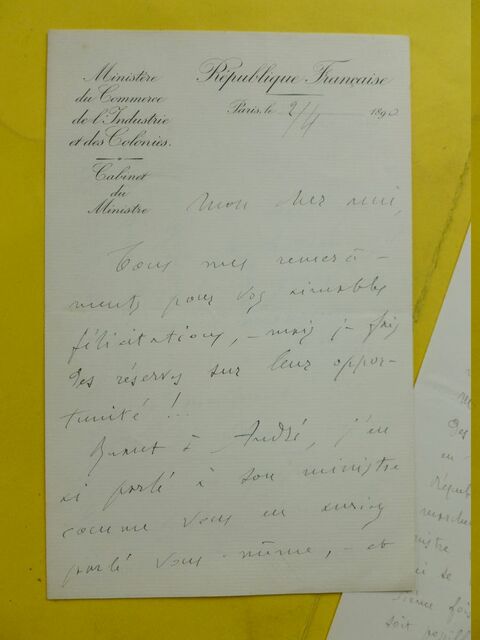 Ministère
du Commerce
de l'Industrie
et des Colonies.
Cabinet
du
Ministre
République Française
Paris, le 2/4 1890
Mon cher ami,
Tous mes remercî-
ments pour vos aimables
félicitations, - mais je fais
des réserves sur leur oppor-
tunité !!
Quant à André, j'en
ai parlé à son ministre
comme vous en auriez
parlé vous-même, - et